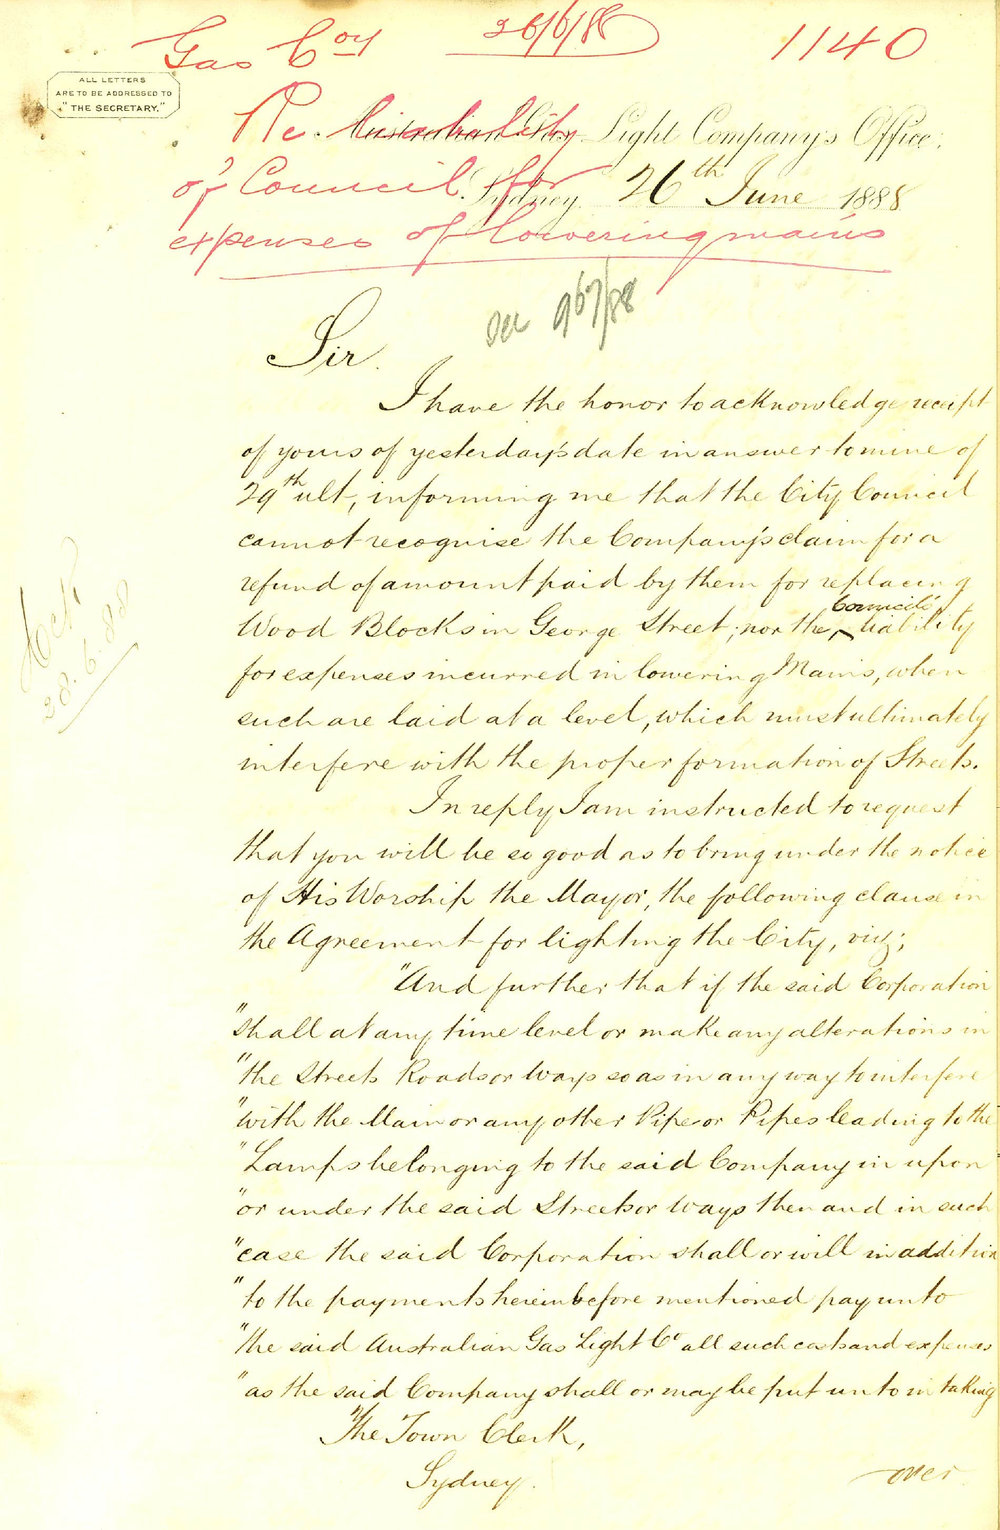 Gas Coy 26/6/88 1140
ALL LETTERS
ARE TO BE ADDRESSED TO
"THE SECRETARY."
Re liability
Australian Gas Light Company's Office,
of Council for
Sydney 26th June 1888
expenses of lowering mains
967/88
Sir.
I have the honor to acknowledge receipt
of yours of yesterday's date in answer to mine of
29th ult, informing me that the City Council
cannot recognise the Company's claim for a
refund of amount paid by them for replacing
Council's
Wood Blocks in George Street; nor the liability
for expenses incurred in lowering Mains, when
such are laid at a level, which must ultimately
interfere with the proper formation of Streets.
28.6.88
In reply I am instructed to request
that you will be so good as to bring under the notice
of His Worship the Mayor, the following clause in
the Agreement for lighting the City, viz;
"And further that if the said Corporation
"shall at any time level or make any alterations in
"the Streets Roads or Ways so as in any way to interfere
"with the Main or any other Pipe or Pipes leading to the
"Lamps belonging to the said Company in upon
"or under the said Streets or ways then and in such
"case the said Corporation shall or will in addition
"to the payments hereinbefore mentioned pay unto
"the said Australian Gas Light Co all such costs and expenses
"as the said Company shall or may be put unto in taking
The Town Clerk,
Sydney.
over